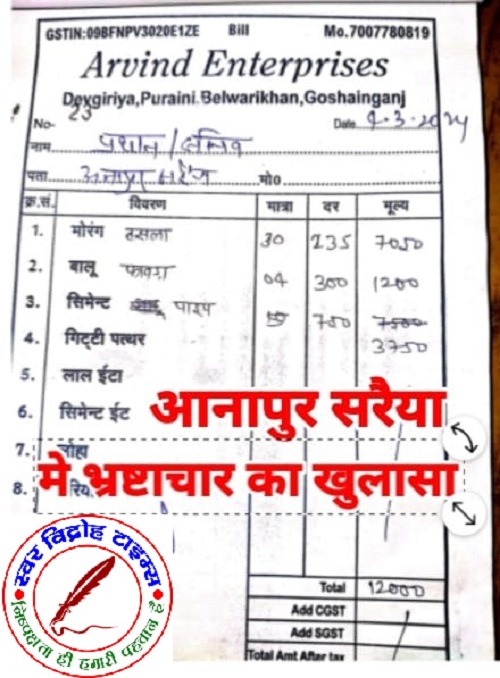 GSTIN:09BFNPV3020E1ZE Bill Mo.7007780819
Arvind Enterprises
Devgiriya,Puraini Belwarikhan,Goshainganj
No- 23 Date 9-3-2024
नाम प्रधान/सचिव
पता मो०
क्र.सं. विवरण मात्रा दर मूल्य
1. मोरंग तसला 30 235 7050
2. बालू फावड़ा 04 300 1200
3. सिमेन्ट पाइप 750 7500
3750
4. गिट्टी पत्थर
5. लाल ईटा
6. सिमेन्ट ईट
आनापुर सरैया
7. लोहा
मे भ्रष्टाचार का खुलासा
8.
स्वर विद्रोह टाइम्स
निष्पक्षता ही हमारी पहचान है
Total 12000
Add CGST
Add SGST
Total Amt After tax